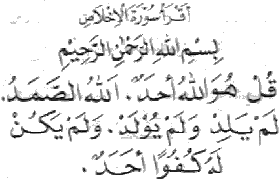 أقرأ سورة الإخلاص
بِسْمِ اللهِ الرَّحْمٰنِ الرَّحِيْمِ
قُلْ هُوَ اللهُ أَحَدٌ. اَللهُ الصَّمَدُ.
لَمْ يَلِدْ وَلَمْ يُوْلَدْ. وَلَمْ يَكُنْ
لَهُ كُفُوًا أَحَدٌ.